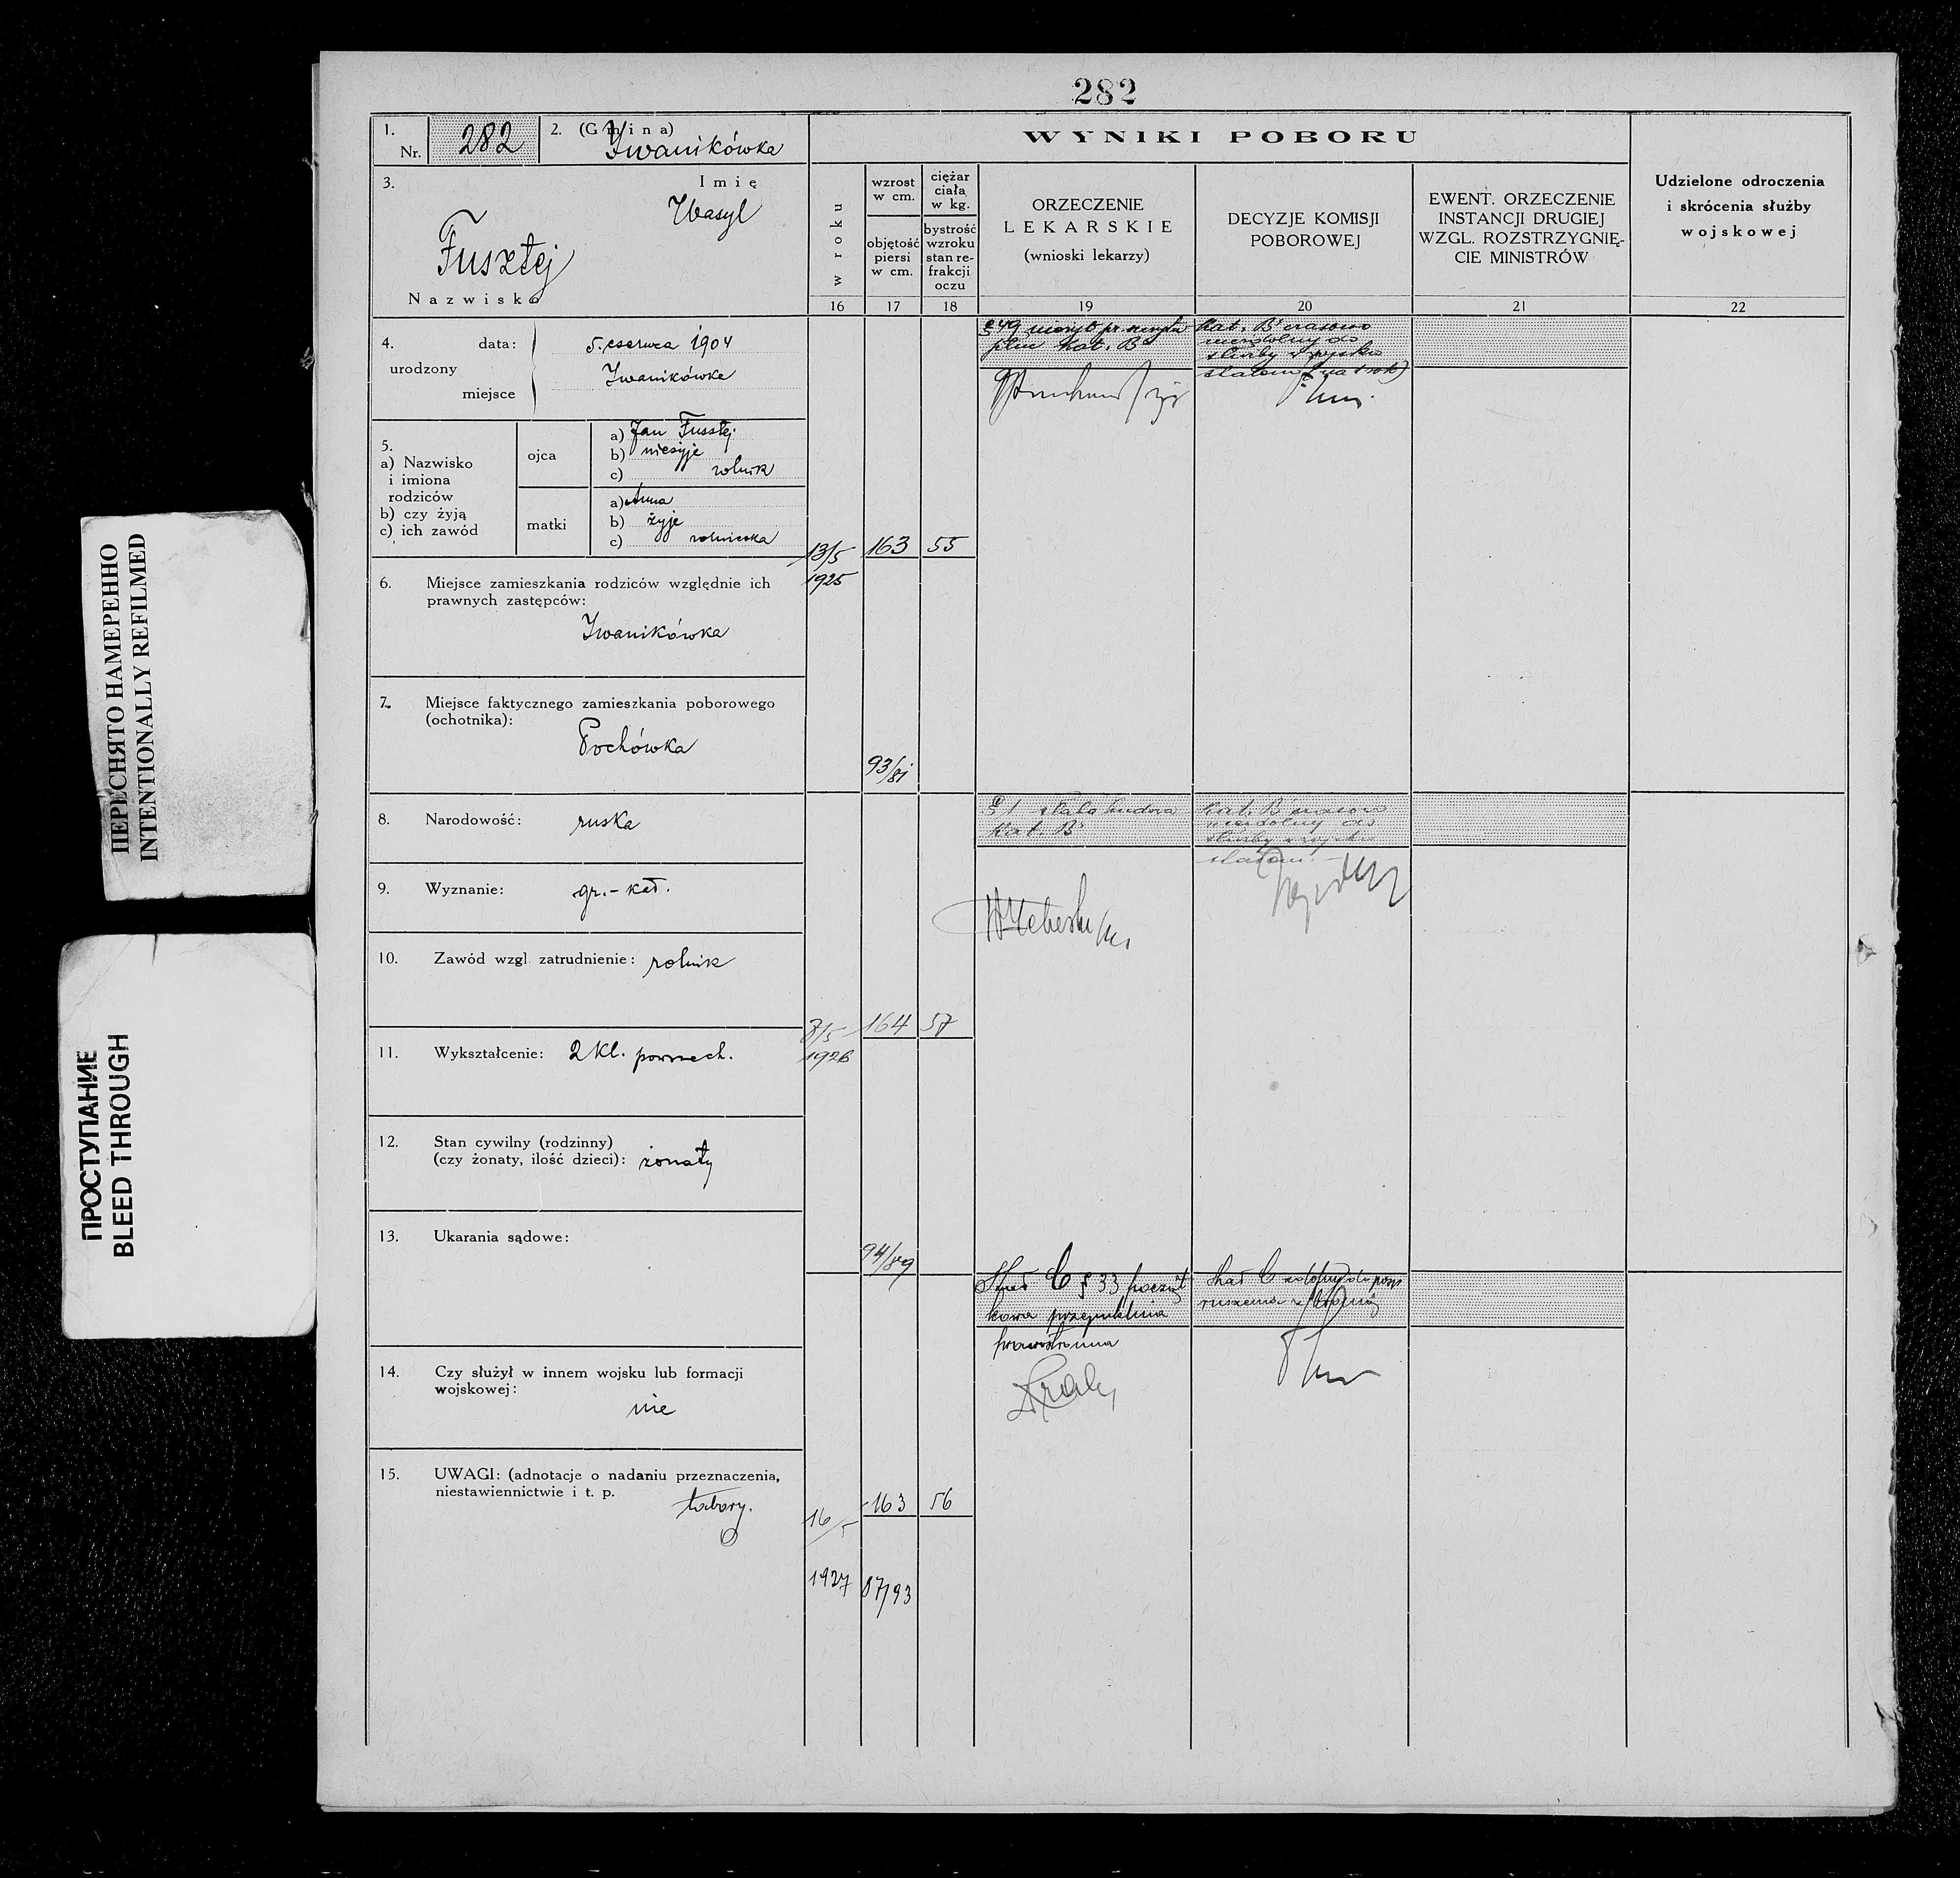 282
1.
Nr. 282
2. (Gmina)
Iwanikówka
3. Imię
Wasyl
Fusztej
Nazwisko
4. urodzony
data: 5. czerwca 1904
miejsce Iwanikówka
5.
a) Nazwisko
i imiona
rodziców
b) czy żyją
c) ich zawód
ojca
a) Jan Fusztej
b) nieżyje
c) rolnik
matki
a) Anna
b) żyje
c) rolniczka
6. Miejsce zamieszkania rodziców względnie ich
prawnych zastępców:
Iwanikówka
7. Miejsce faktycznego zamieszkania poborowego
(ochotnika):
Pochówka
8. Narodowość: ruska
9. Wyznanie: gr.-kat.
10. Zawód wzgl. zatrudnienie: rolnik
11. Wykształcenie: 2 kl. powszech.
12. Stan cywilny (rodzinny)
(czy żonaty, ilość dzieci): żonaty
13. Ukarania sądowe:
14. Czy służył w innem wojsku lub formacji
wojskowej:
nie
15. UWAGI: (adnotacje o nadaniu przeznaczenia,
niestawiennictwie i t. p.
tabory.
WYNIKI POBORU
w roku
16
wzrost
w cm.
objętość
piersi
w cm.
17
ciężar
ciała
w kg.
bystrość
wzroku
stan re-
frakcji
oczu
18
ORZECZENIE
LEKARSKIE
(wnioski lekarzy)
19
DECYZJE KOMISJI
POBOROWEJ
20
EWENT. ORZECZENIE
INSTANCJI DRUGIEJ
WZGL. ROZSTRZYGNIĘ-
CIE MINISTRÓW
21
Udzielone odroczenia
i skrócenia służby
wojskowej
22
13/5 163 55
1925
93/81
§ 49
płuc Kat. B
Kat. B czasowo
niezdolny do
służby wojsko
stałem (na 1 rok)
8/5 164 57
1926
94/89
§ 1 słaba budowa
Kat. B
Kat. B czasowo
niezdolny do
służby wojsko
stałem.
16/5 163 56
1927 87/93
C § 33 począt
kowa przepuklina
prawostronna
Kat C zdolny do posp
ruszenia z bronią
ПЕРЕСНЯТО НАМЕРЕННО
INTENTIONALLY REFILMED
ПРОСТУПАНИЕ
BLEED THROUGH